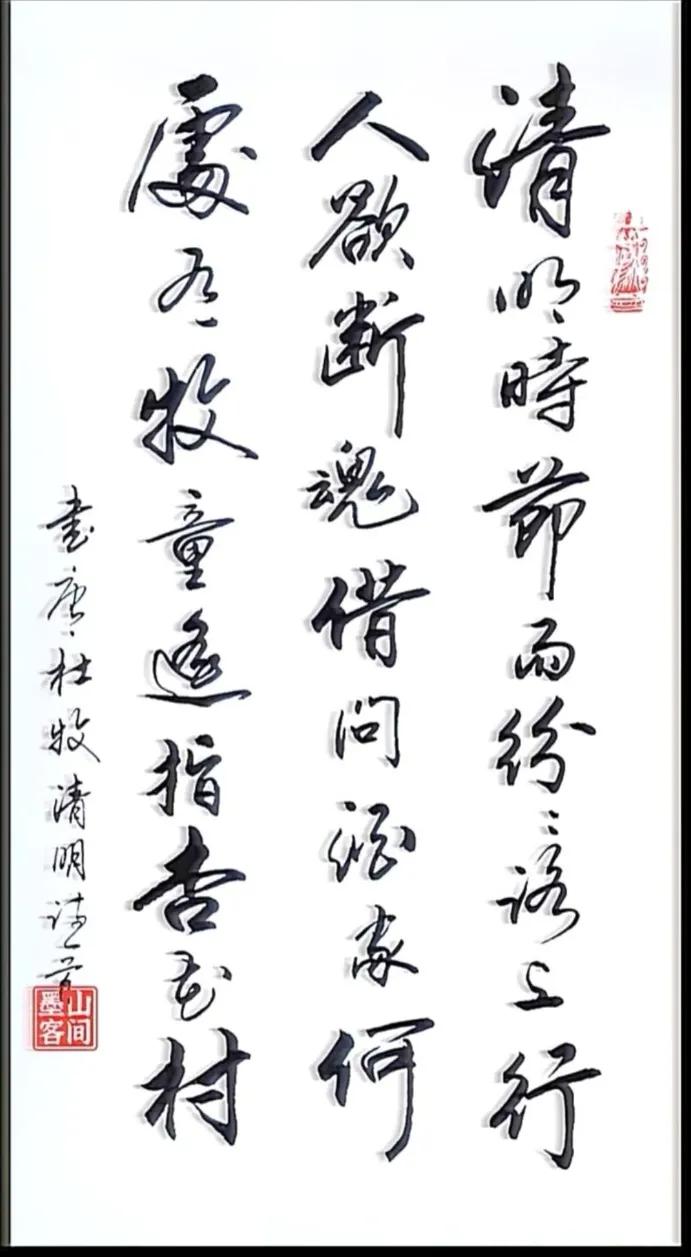 清明時節雨紛〻路上行
人欲斷魂借問酒家何
處有牧童遙指杏花村
書唐杜牧清明詩一首
山間墨客